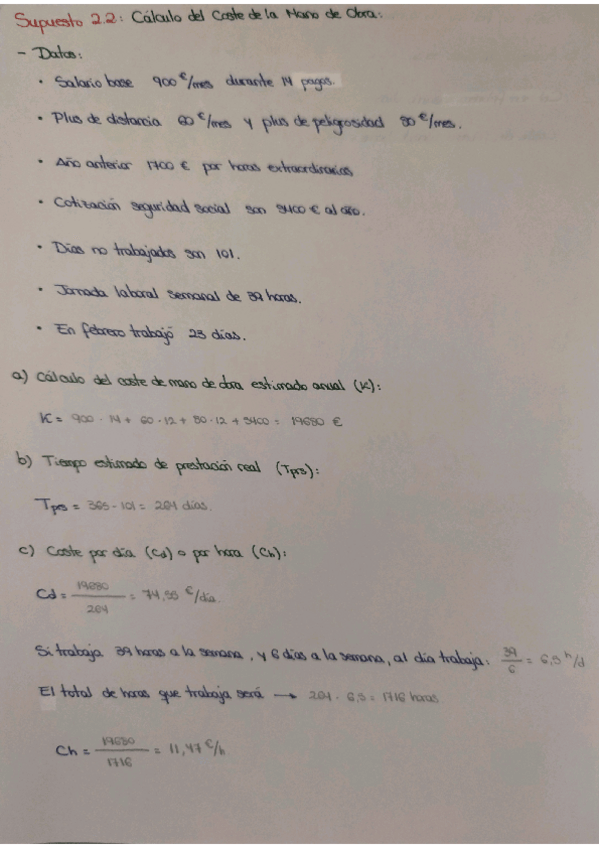 Supuesto 2.2: Cálculo del Coste de la Mano de Obra:
- Datos:
• Salario base 900 €/mes durante 14 pagas.
• Plus de distancia 60 €/mes y plus de peligrosidad 80 €/mes.
• Año anterior 1700 € por horas extraordinarias
• Cotización seguridad social son 5400 € al año.
• Días no trabajados son 101.
• Jornada laboral semanal de 39 horas.
• En febrero trabajó 23 días.
a) Cálculo del coste de mano de obra estimado anual (K):
K = 900 · 14 + 60 · 12 + 80 · 12 + 5400 = 19680 €
b) Tiempo estimado de prestación real (Tprs):
Tprs = 365 - 101 = 264 días.
c) Coste por día (Cd) o por hora (Ch):
Cd = 19680 / 264 = 74,55 €/día.
Si trabaja 39 horas a la semana, y 6 días a la semana, al día trabaja: 39/6 = 6,5 h/d
El total de horas que trabaja será → 264 · 6,5 = 1716 horas
Ch = 19680 / 1716 = 11,47 €/h